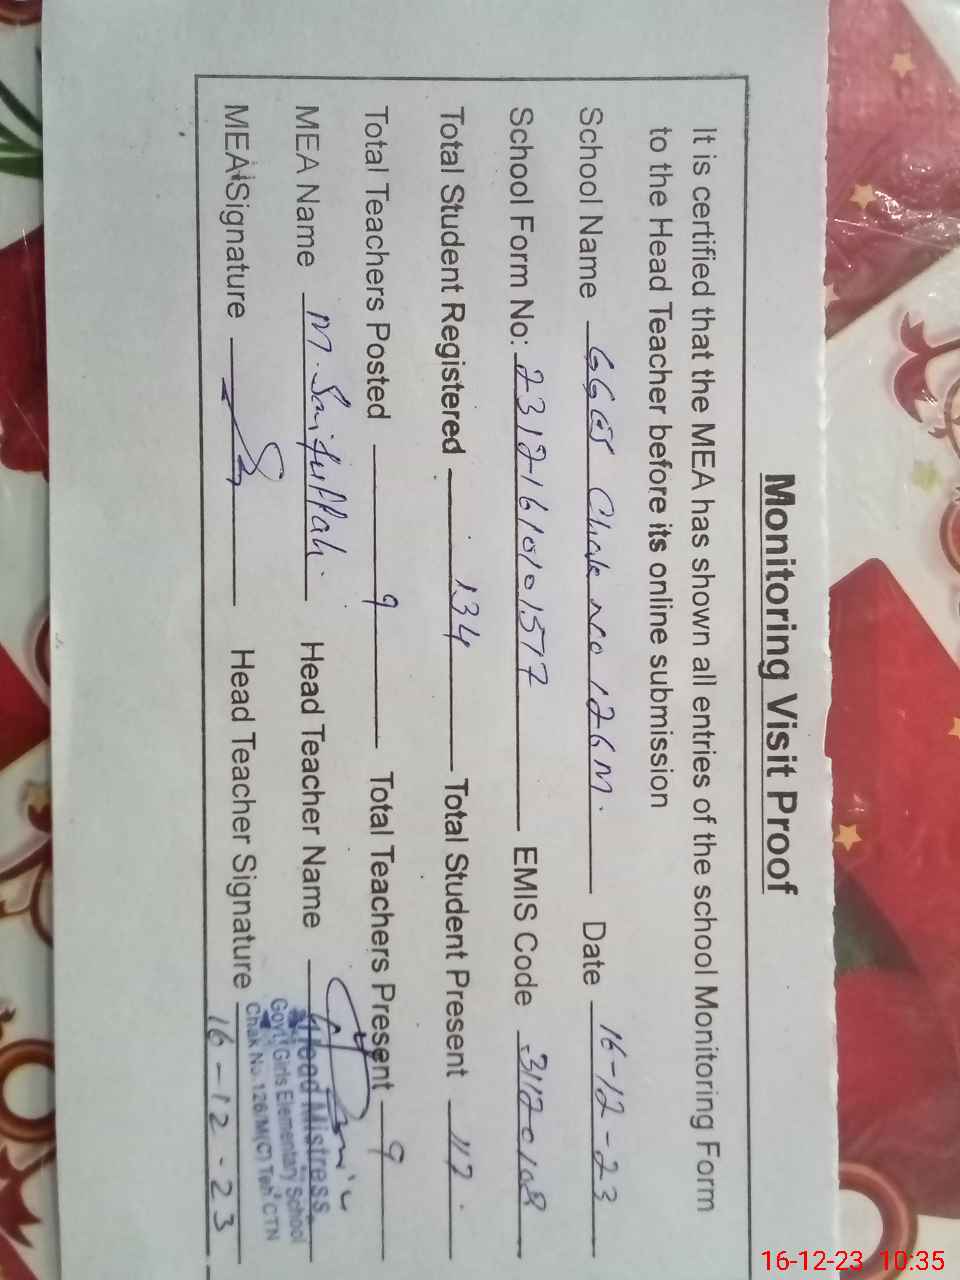 Monitoring Visit Proof
It is certified that the MEA has shown all entries of the school Monitoring Form
to the Head Teacher before its online submission
School Name GGES Chak no 126M. Date 16-12-23
School Form No: 23121610101577 EMIS Code 31120108
Total Student Registered 134 Total Student Present 117.
Total Teachers Posted 9 Total Teachers Present 9
MEA Name M. Saifullah. Head Teacher Name
Head Mistress
Govt. Girls Elementary School
Chak No. 126/M(C) Teh CTN
MEA Signature Head Teacher Signature 16-12-23
16-12-23 10:35